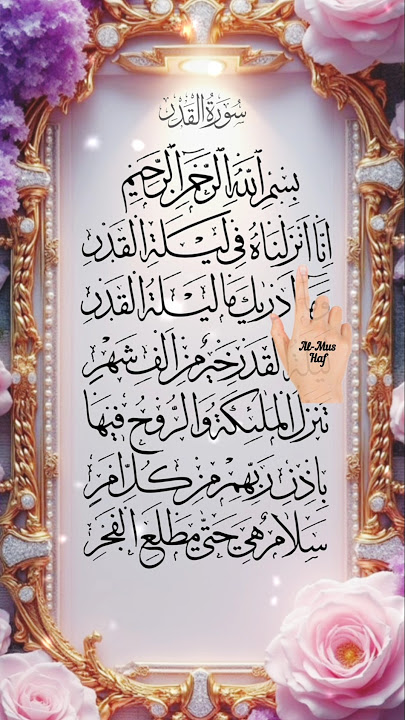 سورة القدر
بسم الله الرحمن الرحيم
انا انزلناه فى ليلة القدر
ادريك ما ليلة القدر
القدر خير من الف شهر
تنزل الملئكة والروح فيها
باذن ربهم من كل امر
سلام هي حتى مطلع الفجر
Al-Mus
Haf